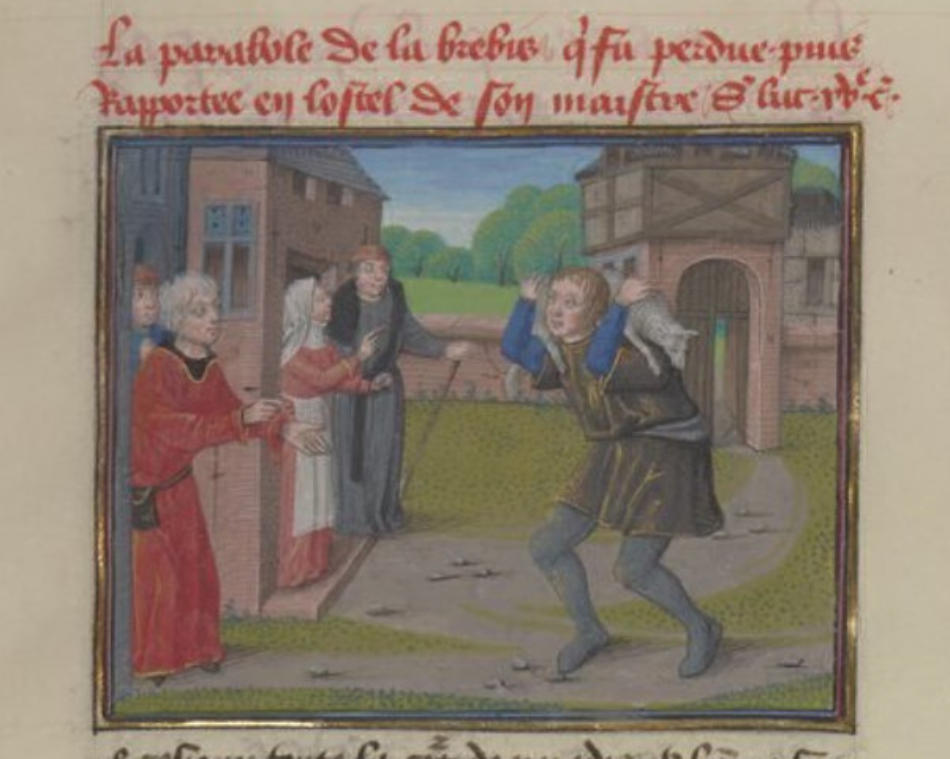 La parabole de la brebis q̃ fu perdue puis
Rapportee en lostel de son maistre S. luc. xv.e c.